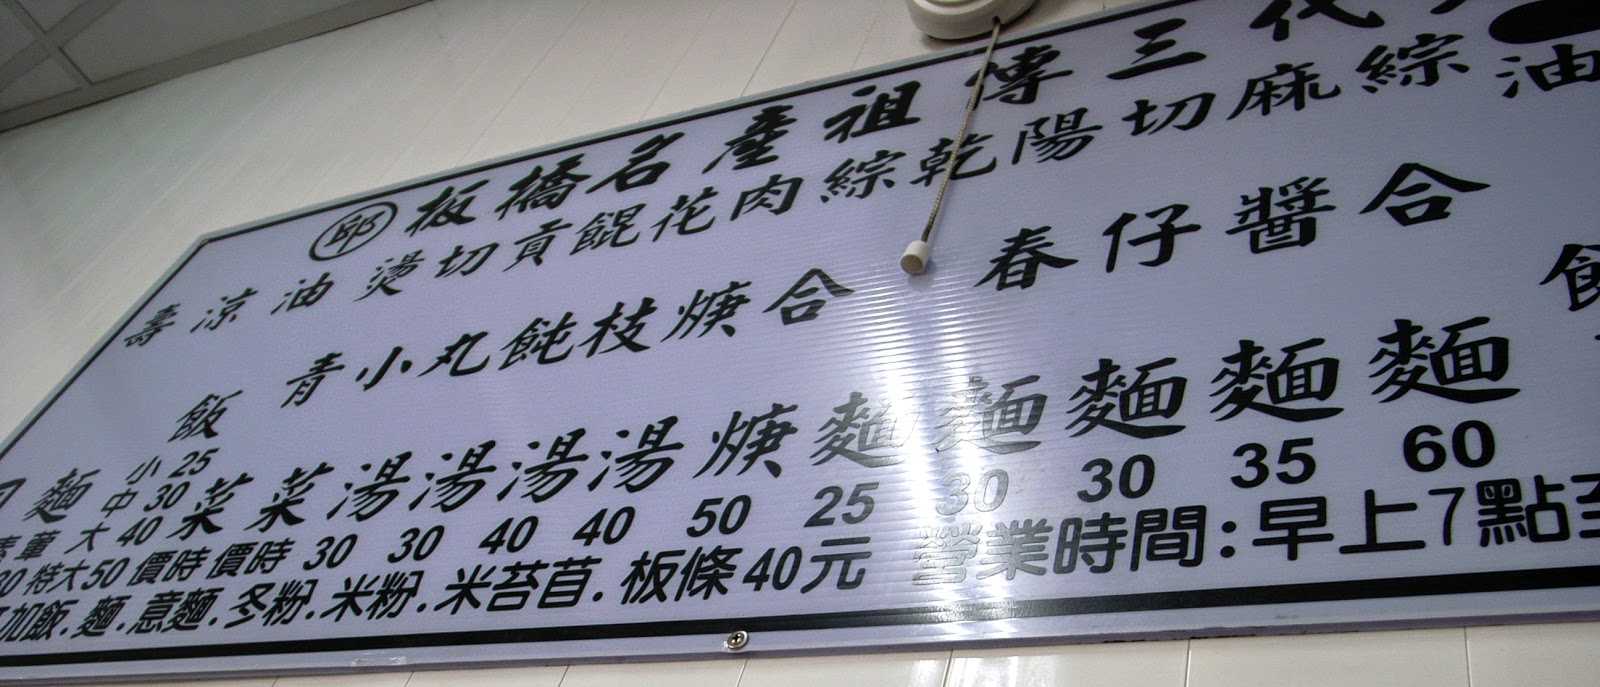 邱 板橋名產祖傳三代
壽司
涼麵
素 葷
油飯
小25
中30
大40
特大50
燙青菜 時價
切小菜 時價
貢丸湯 30
餛飩湯 30
花枝湯 40
肉焿湯 40
綜合焿 50
乾麵 25
陽春麵 30
切仔麵 30
麻醬麵 35
綜合麵 60
油
加飯.麵.意麵.冬粉.米粉.米苔苜.板條40元
營業時間:早上7點至